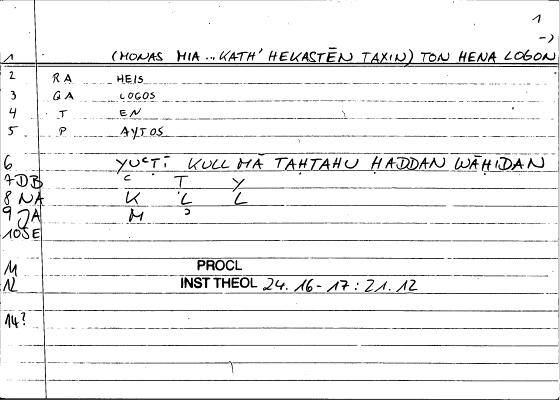 1
->
1 (MONAS MIA ... KATH' HEKASTĒN TAXIN) TON HENA LOGON
2 RA HEIS
3 GA LOGOS
4 T EN
5 P AYTOS
6 YUʿṬĪ KULL MĀ TAḤTAHU ḤADDAN WĀḤIDAN
7 DB ʿ Ṭ Y
8 NA K L L
9 JA M ʾ
10 SE
11 PROCL
12 INST THEOL 24.16-17 : 21.12
14?